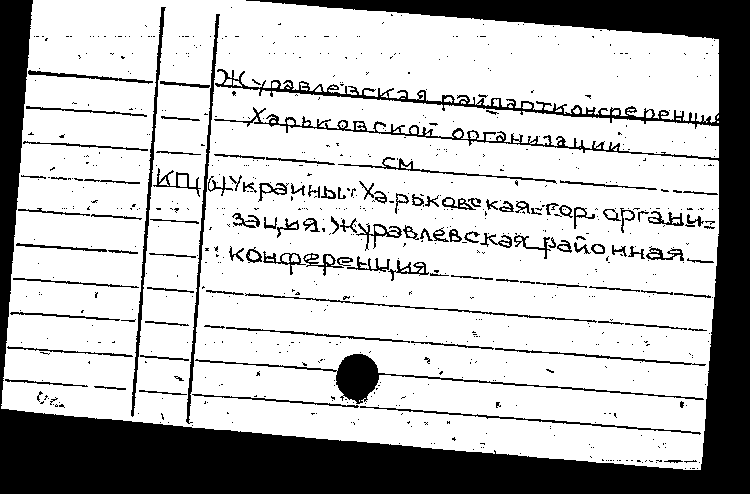 Журавлевская райпартконференция
Харьковской организации
см.
КП(б)Украины. Харьковская гор. органи-
зация. Журавлевская районная
конференция.